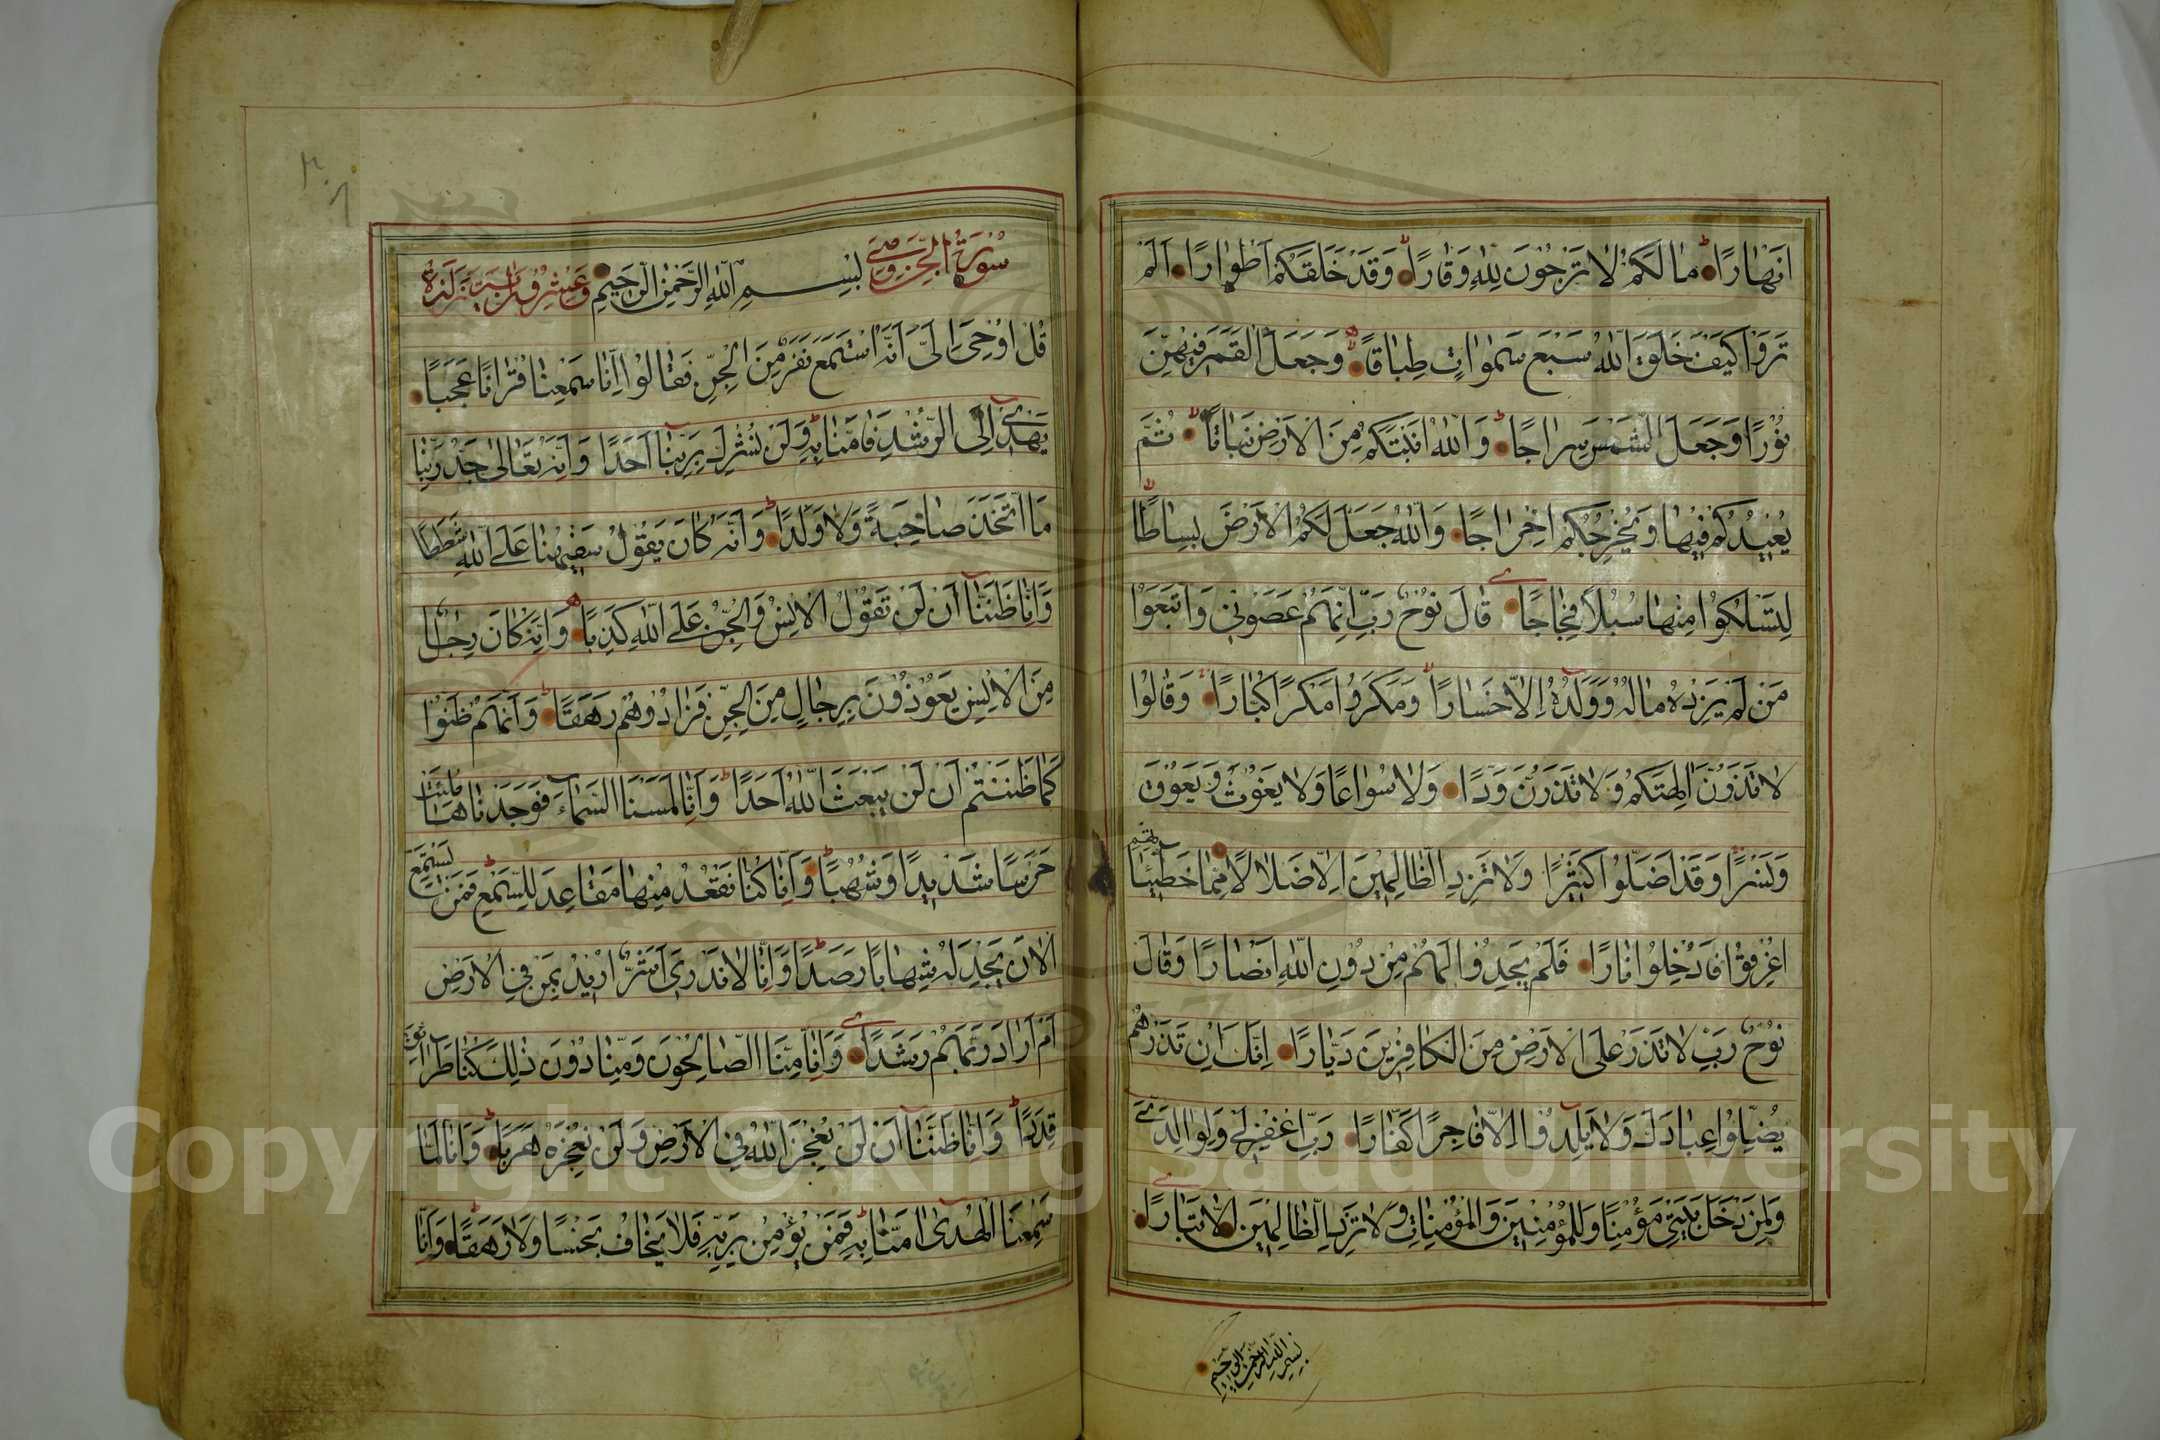 اَنْهَارًا مَا لَكُمْ لَا تَرْجُونَ لِلّٰهِ وَقَارًا وَقَدْ خَلَقَكُمْ اَطْوَارًا اَلَمْ
تَرَوْا كَيْفَ خَلَقَ اللّٰهُ سَبْعَ سَمٰوَاتٍ طِبَاقًا وَجَعَلَ الْقَمَرَ فِيهِنَّ
نُورًا وَجَعَلَ الشَّمْسَ سِرَاجًا وَاللّٰهُ اَنْبَتَكُمْ مِنَ الْاَرْضِ نَبَاتًا ثُمَّ
يُعِيدُكُمْ فِيهَا وَيُخْرِجُكُمْ اِخْرَاجًا وَاللّٰهُ جَعَلَ لَكُمُ الْاَرْضَ بِسَاطًا
لِتَسْلُكُوا مِنْهَا سُبُلًا فِجَاجًا قَالَ نُوحٌ رَبِّ اِنَّهُمْ عَصَوْنِي وَاتَّبَعُوا
مَنْ لَمْ يَزِدْهُ مَالُهُ وَوَلَدُهُ اِلَّا خَسَارًا وَمَكَرُوا مَكْرًا كُبَّارًا وَقَالُوا
لَا تَذَرُنَّ اٰلِهَتَكُمْ وَلَا تَذَرُنَّ وَدًّا وَلَا سُوَاعًا وَلَا يَغُوثَ وَيَعُوقَ
وَنَسْرًا وَقَدْ اَضَلُّوا كَثِيرًا وَلَا تَزِدِ الظَّالِمِينَ اِلَّا ضَلَالًا مِمَّا خَطِيئَاتِهِمْ
اُغْرِقُوا فَاُدْخِلُوا نَارًا فَلَمْ يَجِدُوا لَهُمْ مِنْ دُونِ اللّٰهِ اَنْصَارًا وَقَالَ
نُوحٌ رَبِّ لَا تَذَرْ عَلَى الْاَرْضِ مِنَ الْكَافِرِينَ دَيَّارًا اِنَّكَ اِنْ تَذَرْهُمْ
يُضِلُّوا عِبَادَكَ وَلَا يَلِدُوا اِلَّا فَاجِرًا كَفَّارًا رَبِّ اغْفِرْ لِي وَلِوَالِدَيَّ
وَلِمَنْ دَخَلَ بَيْتِيَ مُؤْمِنًا وَلِلْمُؤْمِنِينَ وَالْمُؤْمِنَاتِ وَلَا تَزِدِ الظَّالِمِينَ اِلَّا تَبَارًا
بسم الله الرحمن الرحيم
سُورَةُ الْجِنِّ وَهِيَ بِسْمِ اللّٰهِ الرَّحْمٰنِ الرَّحِيمِ
قُلْ اُوحِيَ اِلَيَّ اَنَّهُ اسْتَمَعَ نَفَرٌ مِنَ الْجِنِّ فَقَالُوا اِنَّا سَمِعْنَا قُرْاٰنًا عَجَبًا
يَهْدِي اِلَى الرُّشْدِ فَاٰمَنَّا بِهِ وَلَنْ نُشْرِكَ بِرَبِّنَا اَحَدًا وَاَنَّهُ تَعَالٰى جَدُّ رَبِّنَا
مَا اتَّخَذَ صَاحِبَةً وَلَا وَلَدًا وَاَنَّهُ كَانَ يَقُولُ سَفِيهُنَا عَلَى اللّٰهِ شَطَطًا
وَاَنَّا ظَنَنَّا اَنْ لَنْ تَقُولَ الْاِنْسُ وَالْجِنُّ عَلَى اللّٰهِ كَذِبًا وَاَنَّهُ كَانَ رِجَالٌ
مِنَ الْاِنْسِ يَعُوذُونَ بِرِجَالٍ مِنَ الْجِنِّ فَزَادُوهُمْ رَهَقًا وَاَنَّهُمْ ظَنُّوا
كَمَا ظَنَنْتُمْ اَنْ لَنْ يَبْعَثَ اللّٰهُ اَحَدًا وَاَنَّا لَمَسْنَا السَّمَاءَ فَوَجَدْنَاهَا مُلِئَتْ
حَرَسًا شَدِيدًا وَشُهُبًا وَاَنَّا كُنَّا نَقْعُدُ مِنْهَا مَقَاعِدَ لِلسَّمْعِ فَمَنْ يَسْتَمِعِ
الْاٰنَ يَجِدْ لَهُ شِهَابًا رَصَدًا وَاَنَّا لَا نَدْرِي اَشَرٌّ اُرِيدَ بِمَنْ فِي الْاَرْضِ
اَمْ اَرَادَ بِهِمْ رَبُّهُمْ رَشَدًا وَاَنَّا مِنَّا الصَّالِحُونَ وَمِنَّا دُونَ ذٰلِكَ كُنَّا طَرَائِقَ
قِدَدًا وَاَنَّا ظَنَنَّا اَنْ لَنْ نُعْجِزَ اللّٰهَ فِي الْاَرْضِ وَلَنْ نُعْجِزَهُ هَرَبًا وَاَنَّا لَمَّا
سَمِعْنَا الْهُدٰى اٰمَنَّا بِهِ فَمَنْ يُؤْمِنْ بِرَبِّهِ فَلَا يَخَافُ بَخْسًا وَلَا رَهَقًا وَاَنَّا
Copyright © King Saud University